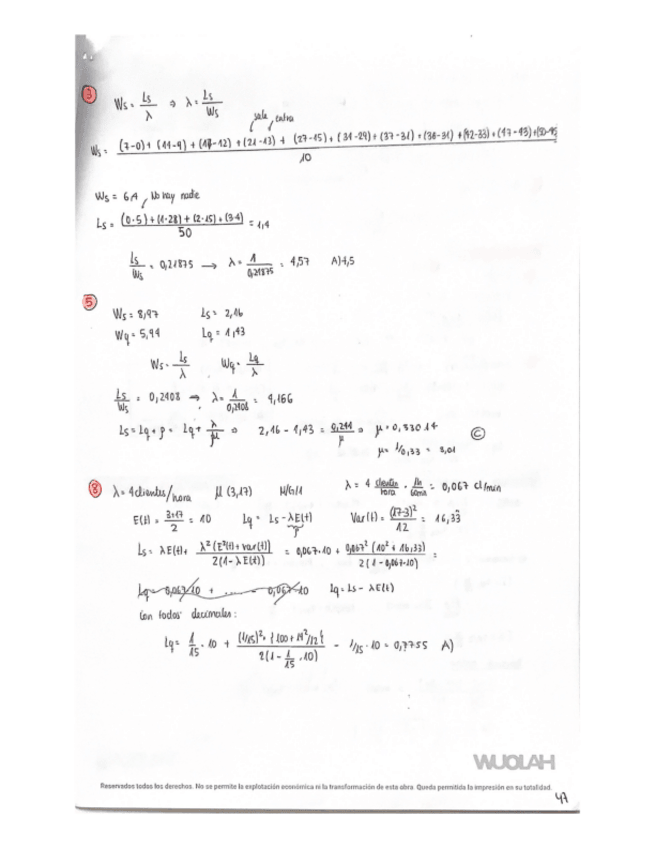 3
Ws = Ls/λ ⇒ λ = Ls/Ws
sale, entra
Ws = ((7-0) + (11-9) + (18-12) + (21-13) + (27-15) + (31-29) + (37-31) + (38-31) + (42-33) + (47-43) + (50-45)) / 10
Ws = 6,4, No hay nadie
Ls = ((0·5) + (1·28) + (2·15) + (3·4)) / 50 = 1,4
Ls/Ws = 0,21875 → λ = 1/0,21875 = 4,57 A) 4,5
5
Ws = 8,97 Ls = 2,16
Wq = 5,94 Lq = 1,43
Ws = Ls/λ Wq = Lq/λ
Ls/Ws = 0,2408 → λ = 1/0,2408 = 4,166
Ls = Lq + ρ = Lq + λ/μ ⇒ 2,16 - 1,43 = 0,241/μ ⇒ μ = 0,33014 C
μ = 1/0,33 = 3,01
8 λ = 4 clientes/hora μ (3,17) M/G/1 λ = 4 clientes/hora · 1h/60min = 0,067 cl/min
E(t) = 3+17/2 = 10 Lq = Ls - λE(t) Var(t) = (17-3)²/12 = 16,33
ρ
Ls = λE(t) + λ²(E²(t) + var(t))/2(1-λE(t)) = 0,067·10 + 0,067²(10² + 16,33)/2(1-0,067·10) =
Lq = 0,067·10 + ........ - 0,067·10 Lq = Ls - λE(t)
Con todos decimales:
Lq = 1/15 · 10 + (1/15)² · {100 + 14²/12}/2(1 - 1/15 · 10) - 1/15 · 10 = 0,7755 A)
WUOLAH
Reservados todos los derechos. No se permite la explotación económica ni la transformación de esta obra. Queda permitida la impresión en su totalidad.
47